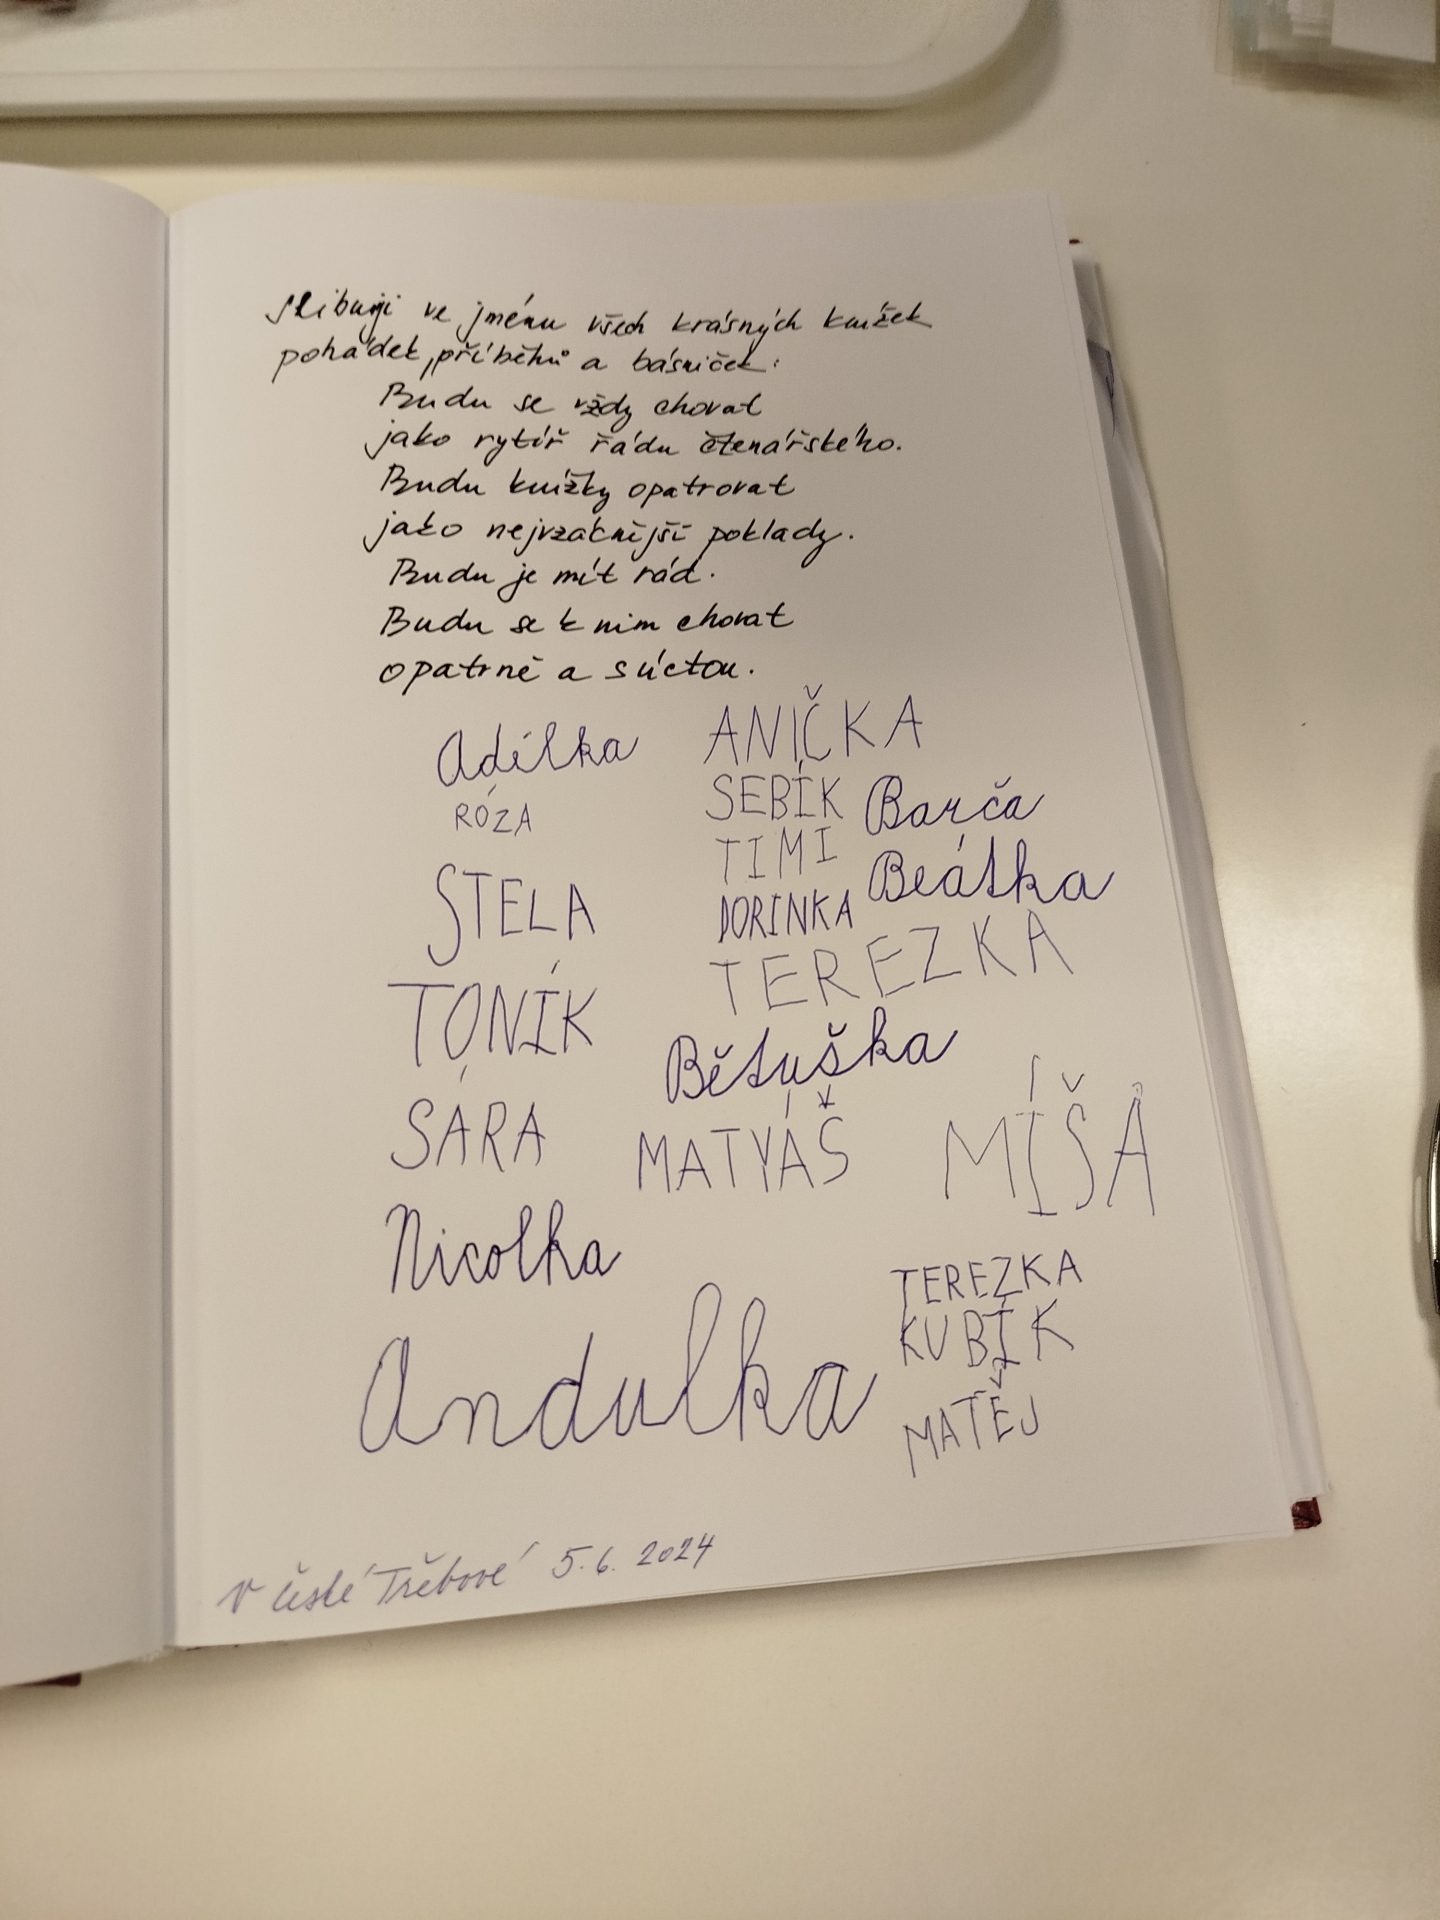 Slibuji ve jménu všech krásných knížek
pohádek, příběhů a básniček:
Budu se vždy chovat
jako rytíř řádu čtenářského.
Budu knížky opatrovat
jako nejvzácnější poklady.
Budu je mít rád.
Budu se k nim chovat
opatrně a s úctou.
Adélka ANIČKA
RÓZA SEBÍK Barča
TIMI Beátka
STELA DORINKA
TEREZKA
TONÍK
Bětuška
SÁRA MATYÁŠ MÍŠA
Nicolka
TEREZKA
KUBÍK
Andulka
MATĚJ
V České Třebové 5.6.2024